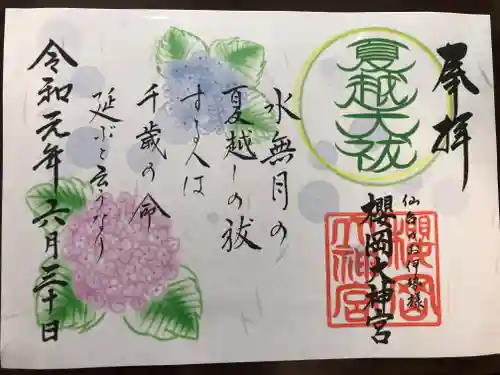 奉拝
夏越大祓
仙台のお伊勢様
櫻岡大神宮
櫻岡大神宮
水無月の
夏越しの祓
する人は
千歳の命
延ぶと云うなり
令和元年六月三十日